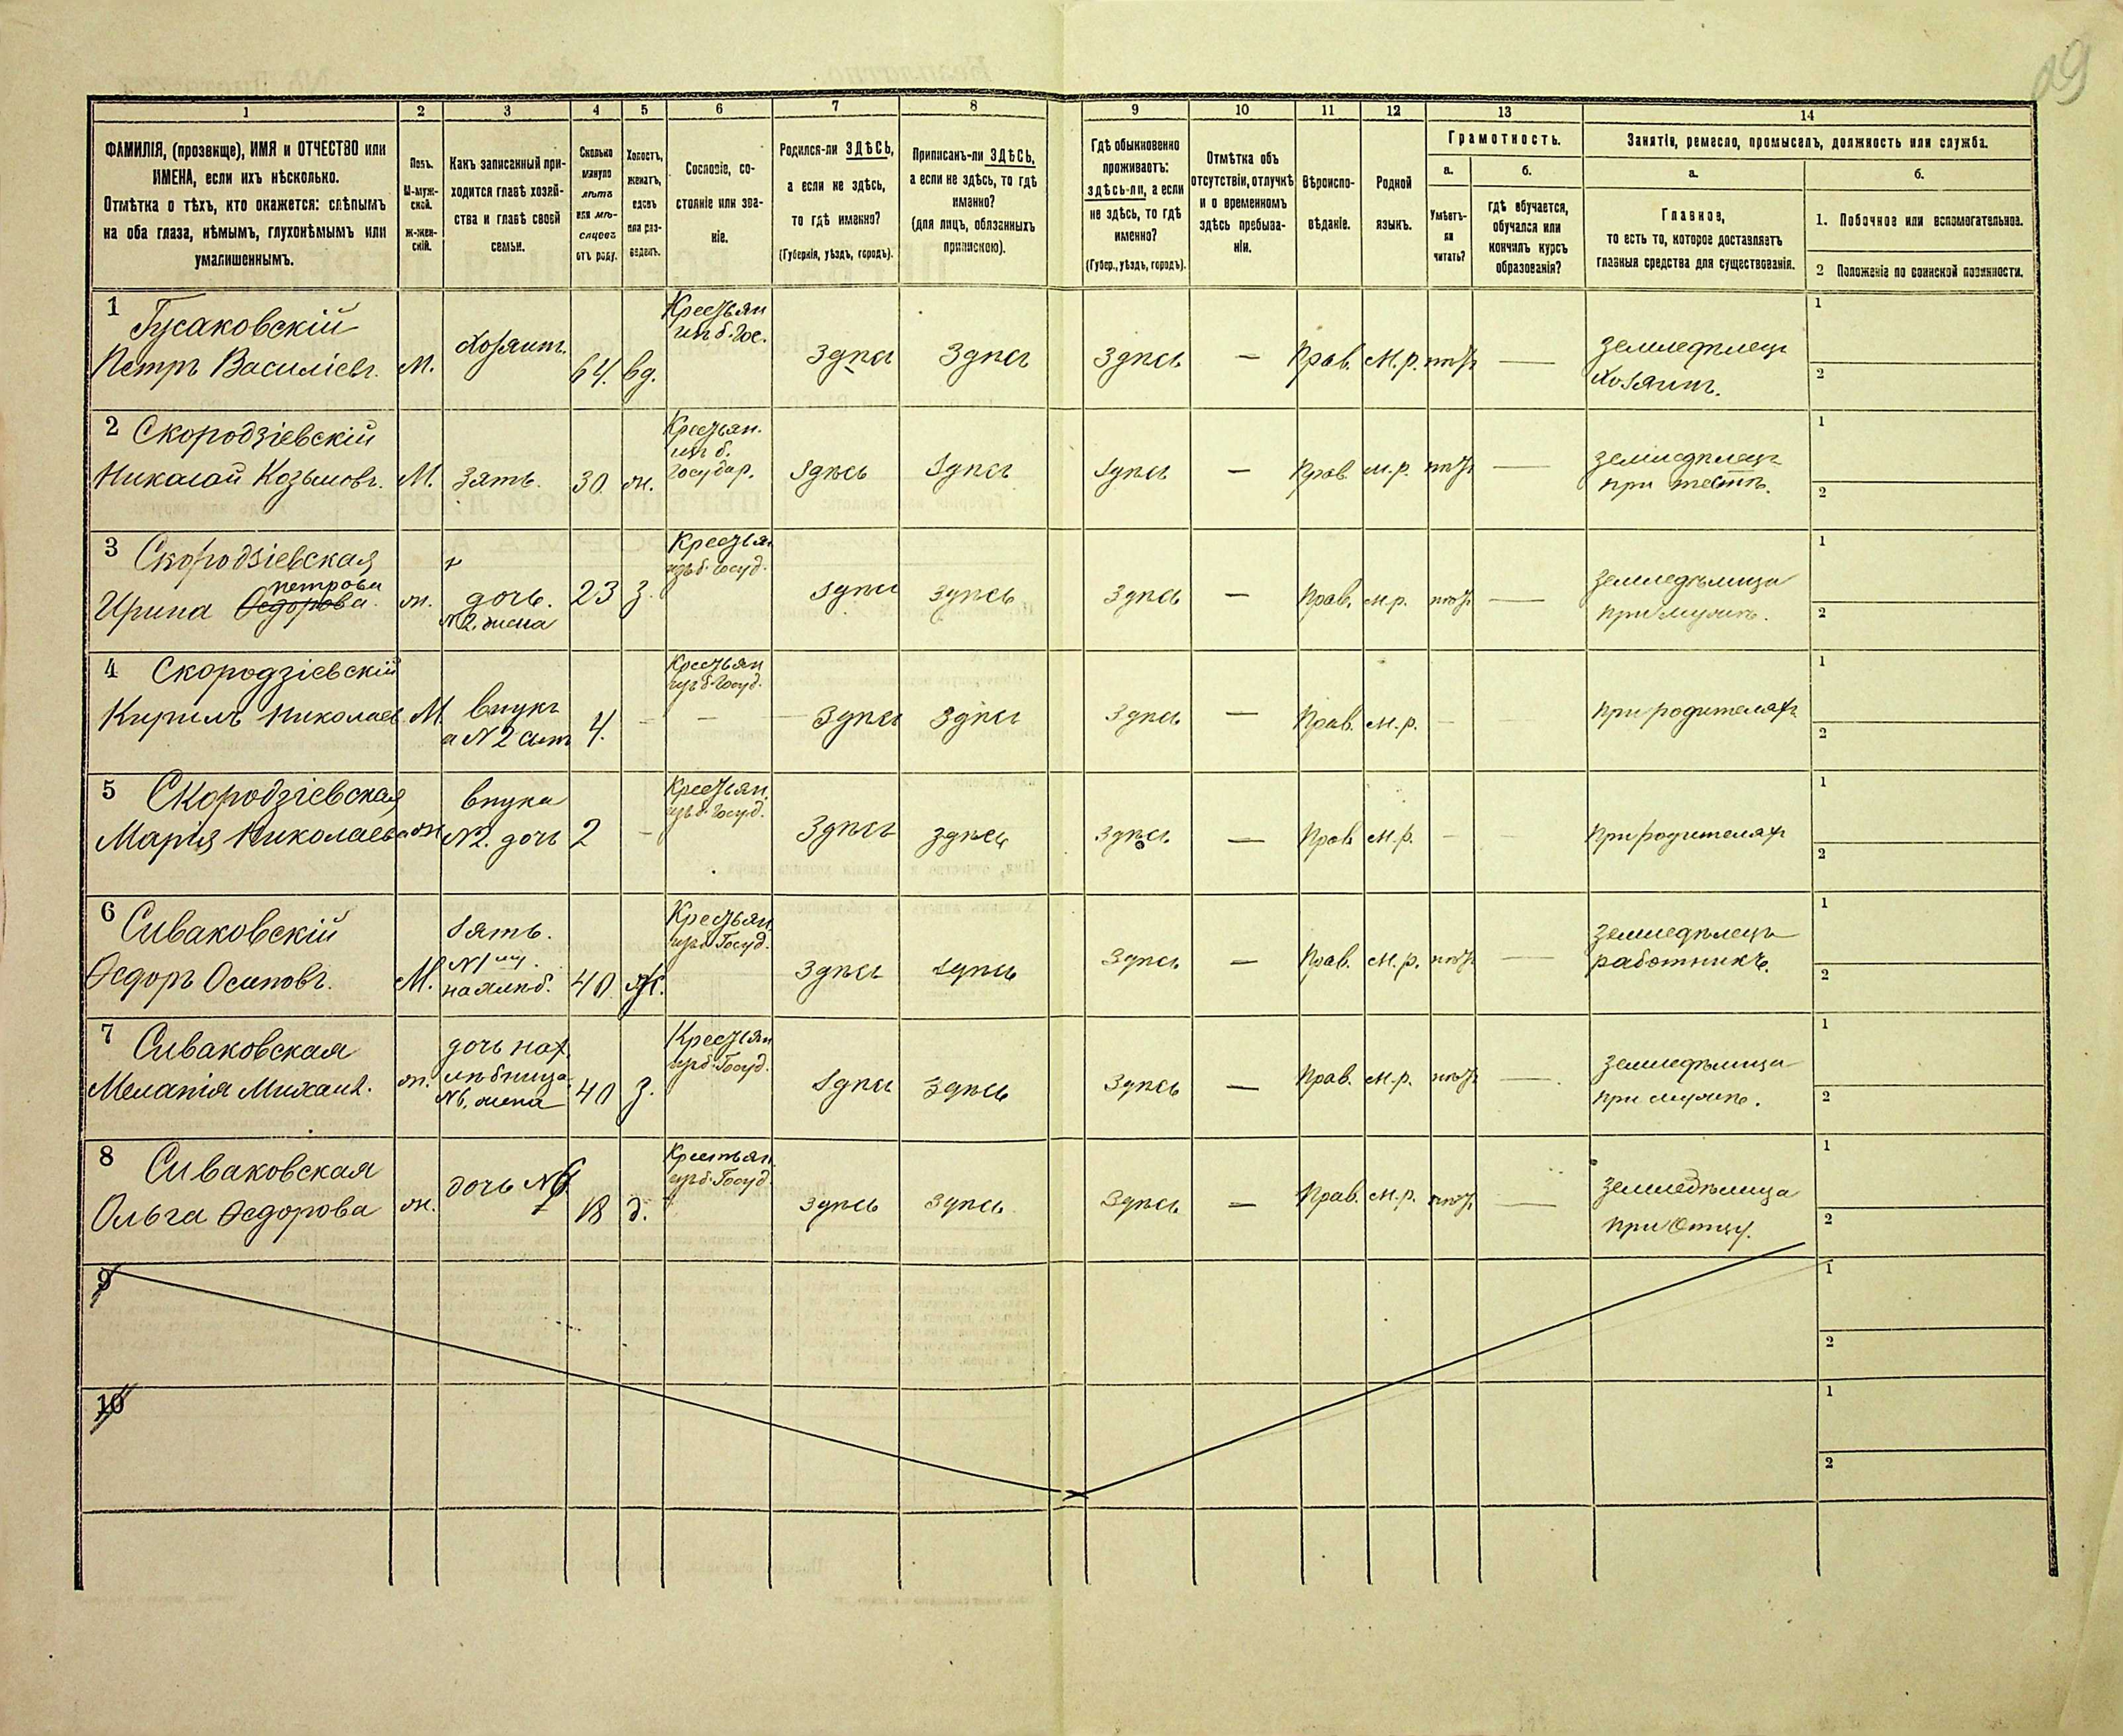 89
1
2
3
4
5
6
7
8
9
10
11
12
13
14
ФАМИЛІЯ, (прозвище), ИМЯ и ОТЧЕСТВО или
ИМЕНА, если ихъ нѣсколько.
Отмѣтка о тѣхъ, кто окажется: слѣпымъ
на оба глаза, нѣмымъ, глухонѣмымъ или
умалишеннымъ.
Полъ.
М-муж-
ской.
Ж-жен-
скій.
Какъ записанный при-
ходится главѣ хозяй-
ства и главѣ своей
семьи.
Сколько
минуло
лѣтъ
или мѣ-
сяцевъ
отъ роду.
Холостъ,
женатъ,
вдовъ
или раз-
веденъ.
Сословіе, со-
стояніе или зва-
ніе.
Родился-ли ЗДѢСЬ,
а если не здѣсь,
то гдѣ именно?
(Губернія, уѣздъ, городъ).
Приписанъ-ли ЗДѢСЬ,
а если не здѣсь, то гдѣ
именно?
(для лицъ, обязанныхъ
припискою).
Гдѣ обыкновенно
проживаетъ:
здѣсь-ли, а если
не здѣсь, то гдѣ
именно?
(Губер., уѣздъ, городъ).
Отмѣтка объ
отсутствіи, отлучкѣ
и о временномъ
здѣсь пребыва-
ніи.
Вѣроиспо-
вѣданіе.
Родной
языкъ.
Грамотность.
а.
Умѣетъ-
ли
читать?
б.
гдѣ обучается,
обучался или
кончилъ курсъ
образованія?
Занятіе, ремесло, промыселъ, должность или служба.
а.
Главное,
то есть то, которое доставляетъ
главныя средства для существованія.
б.
1. Побочное или вспомогательное.
2 Положеніе по воинской повинности.
1
Гусаковскій
Петръ Василіевъ.
М.
хозяинъ.
64.
вд.
Крестьян
изъ б. Гос.
Здѣсь
Здѣсь
Здѣсь
—
Прав.
М.р.
нѣтъ
—
земледѣлецъ
хозяинъ.
1
2
2 Скородзіевскій
Николай Козьмовъ.
М.
зять.
30
ж.
Крестьян.
изъ б.
государ.
Здѣсь
Здѣсь
Здѣсь
—
Прав.
м.р.
нѣтъ
—
земледѣлецъ
при тестѣ.
1
2
3 Скородзіевская
петрова
Ирина Ѳедорова.
ж.
дочь.
N2. жена
23
з.
Крестьян
изъ б. госуд.
Здѣсь
Здѣсь
Здѣсь
—
Прав.
м.р.
нѣтъ
—
земледѣлица
при мужѣ.
1
2
4 Скородзіевскій
Кирилъ Николаев
М.
внукъ
а N2 сынъ
4.
—
Крестьян
изъ б. Госуд.
—
Здѣсь
Здѣсь
Здѣсь
—
Прав.
м.р.
—
—
при родителяхъ
1
2
5 Скородзіевская
Марія Николаева
ж.
внука
N2. дочь
2
—
Крестьян.
изъ б. Госуд.
Здѣсь
здѣсь
Здѣсь.
—
Прав
м.р.
—
—
При родителях
1
2
6
Сиваковскій
Ѳедоръ Осиповъ.
М.
зять.
40
Ж.
Крестьян.
изъ б. Госуд.
Здѣсь
Здѣсь
Здѣсь
—
Прав.
м.р.
нѣтъ
—
земледѣлецъ
работникъ.
1
2
7 Сиваковская
Меланія Михаил.
ж.
дочь нах
лѣбница.
N6. жена
40
з.
Крестьян
изъ б. Госуд.
Здѣсь
Здѣсь
Здѣсь
—
Прав.
м.р.
нѣтъ
—
земледѣлица
при мужѣ.
1
2
8 Сиваковская
Ольга Ѳедорова
ж.
дочь N6
18
д.
Крестьян.
изъ б. Госуд.
Здѣсь
Здѣсь
Здѣсь
—
Прав.
м.р.
нѣтъ
—
земледѣлица
при отцу.
1
2
9
1
2
10
1
2